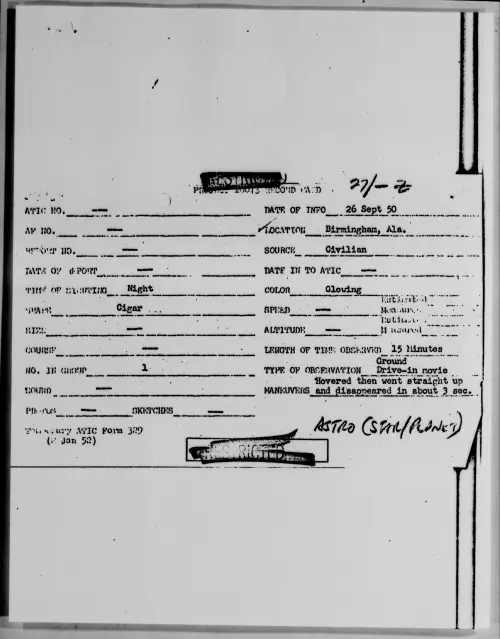 RECORD CARD 27/- Z
ATIC NO. — DATE OF INFO 26 Sept 50
AF NO. — LOCATION Birmingham, Ala.
REPORT NO. — SOURCE Civilian
DATE OF REPORT — DATE IN TO ATIC —
TIME OF SIGHTING Night COLOR Glowing
SHAPE Cigar SPEED —
SIZE — ALTITUDE —
COURSE — LENGTH OF TIME OBSERVED 15 Minutes
NO. IN GROUP 1 TYPE OF OBSERVATION Ground
Drive-in movie
SOUND — MANEUVERS Hovered then went straight up
and disappeared in about 3 sec.
PHOTOS — SKETCHES —
Temporary ATIC Form 329
(2 Jan 52)
ASTRO (STAR/PLANET)
RESTRICTED